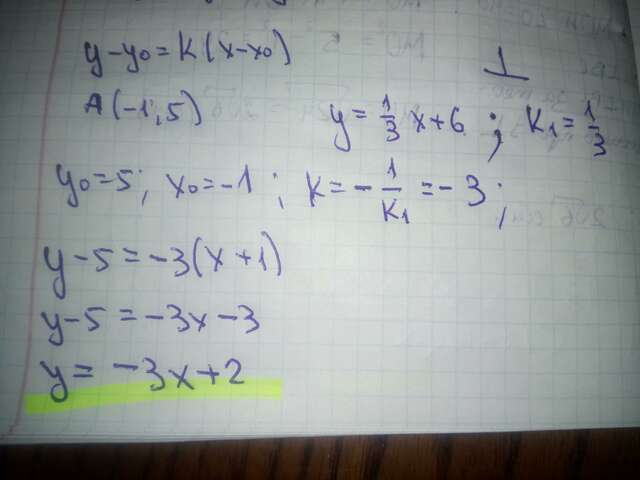 y-y₀=k(x-x₀)
⊥
A(-1;5)
y=1/3 x+6 ; K₁=1/3
y₀=5; x₀=-1 ; K=-1/K₁=-3;
y-5=-3(x+1)
y-5=-3x-3
y=-3x+2